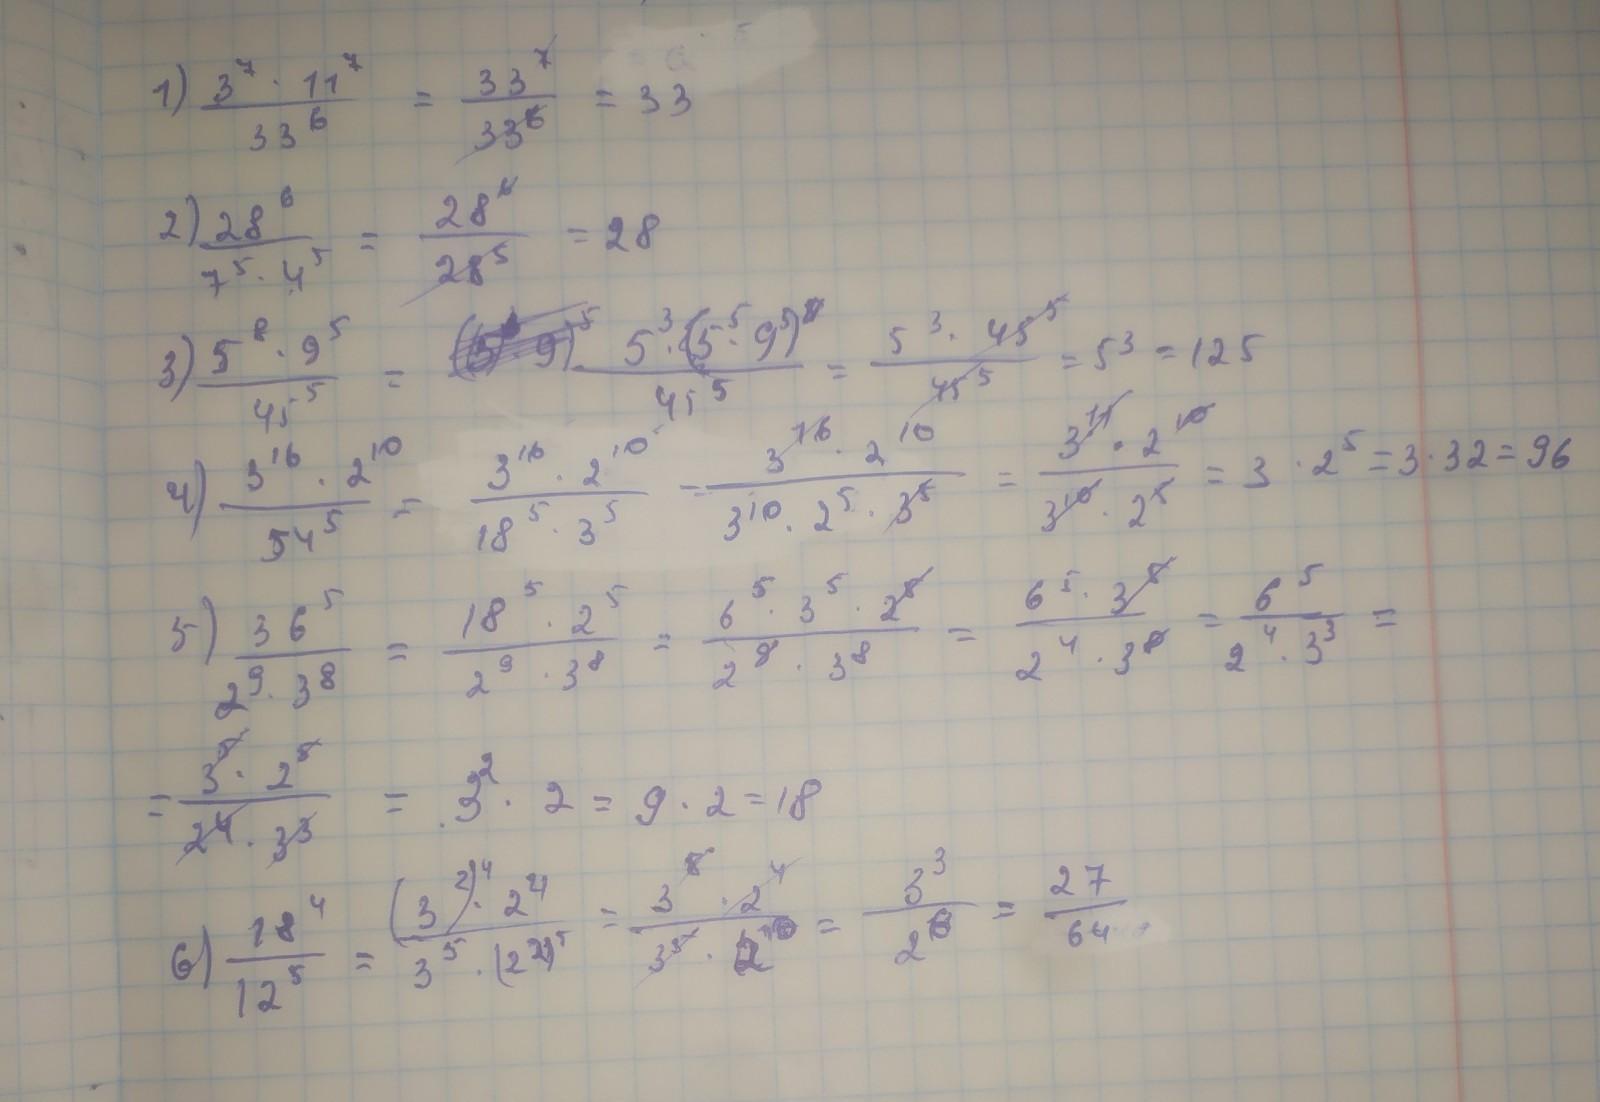 1) 3^7 · 11^7 / 33^6 = 33^7 / 33^6 = 33
2) 28^6 / 7^5 · 4^5 = 28^6 / 28^5 = 28
3) 5^8 · 9^5 / 45^5 = 5^3 · (5^5 · 9^5) / 45^5 = 5^3 · 45^5 / 45^5 = 5^3 = 125
4) 3^16 · 2^10 / 54^5 = 3^16 · 2^10 / 18^5 · 3^5 = 3^16 · 2^10 / 3^10 · 2^5 · 3^5 = 3^11 · 2^10 / 3^10 · 2^5 = 3 · 2^5 = 3 · 32 = 96
5) 36^5 / 2^9 · 3^8 = 18^5 · 2^5 / 2^9 · 3^8 = 6^5 · 3^5 · 2^5 / 2^9 · 3^8 = 6^5 · 3^5 / 2^4 · 3^8 = 6^5 / 2^4 · 3^3 =
= 3^5 · 2^5 / 2^4 · 3^3 = 3^2 · 2 = 9 · 2 = 18
6) 18^4 / 12^5 = (3^2)^4 · 2^4 / 3^5 · (2^2)^5 = 3^8 · 2^4 / 3^5 · 2^10 = 3^3 / 2^6 = 27 / 64